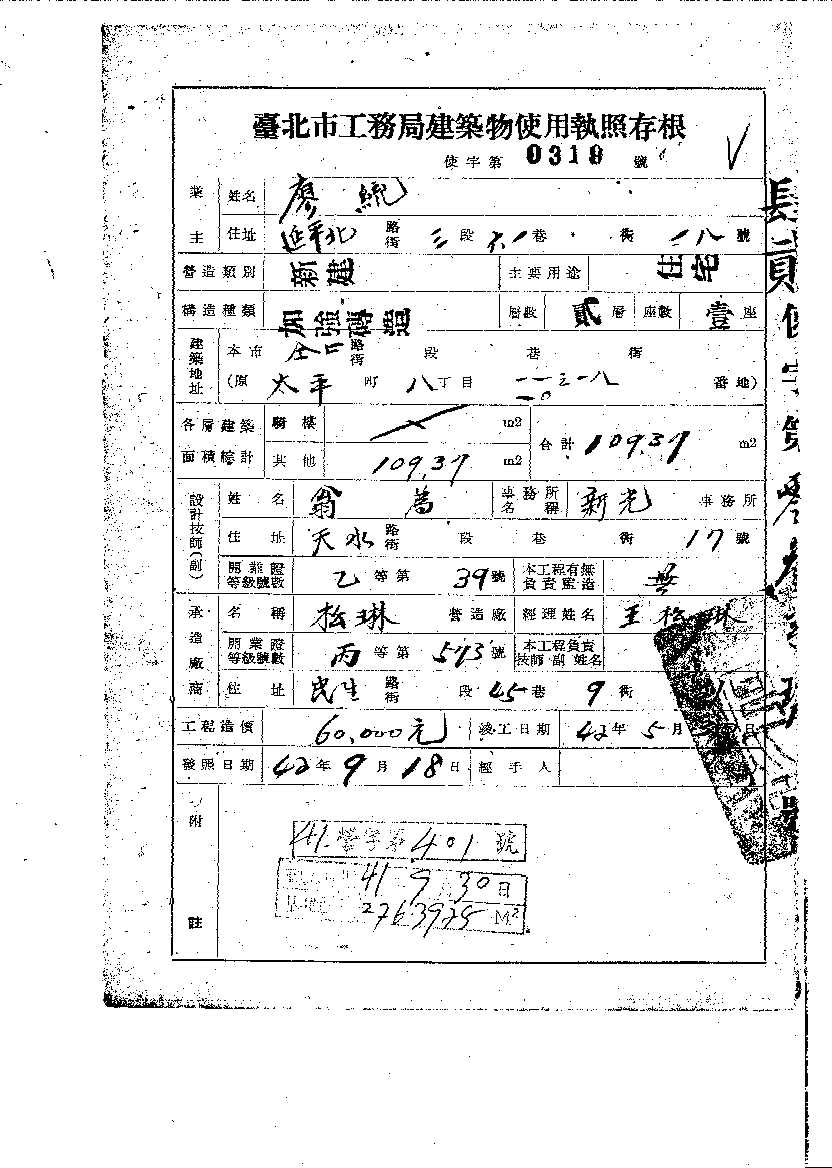 臺北市工務局建築物使用執照存根
使字第 0318 號
業主 姓名 廖統
住址 延平北路街 三段 六一巷 街 一八號
營造類別 新建 主要用途 住宅
構造種類 加強磚造 層數 貳層 座數 壹座
建築地址 本市 仝口 路街 段 巷 街
(原 太平町 八丁目 番地)
各層建築面積總計 騎樓 m2 合計 109.37 m2
其他 109.37 m2
設計技師(副) 姓名 翁 事務所名稱 新光 事務所
住址 天水路街 段 巷 街 17號
開業證等級號數 乙等第 39號 本工程有無負責監造 無
承造廠商 名稱 松琳 營造廠 經理姓名 王松琳
開業證等級號數 丙等第 573號 本工程負責技師·副 姓名
住址 民生路街 段 45巷 9街
工程造價 60,000元 竣工日期 42年5月 日
發照日期 42年9月18日 經手人
附註
41.營字第401號
41 9 30日
2763975 M²